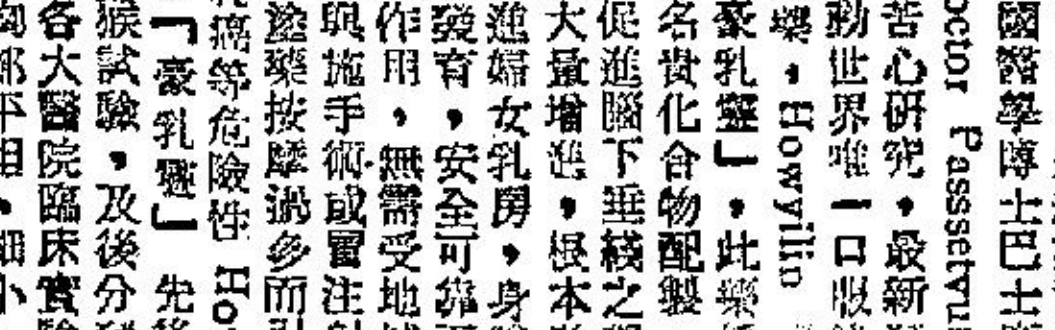 國醫學博士巴士
octor Passetyu
苦心研究，最新
動世界唯一口服
藥，Howyllin
豪乳靈」，此藥
名貴化合物配製
促進腦下垂綫之
大量增進，根本
進婦女乳房，身
發育，安全可靠
作用，無需受地
與施手術或電注
塗藥按摩過多而
癌等危險性 Ho
「豪乳靈」先後
猴試驗，及後分
各大醫院臨床實